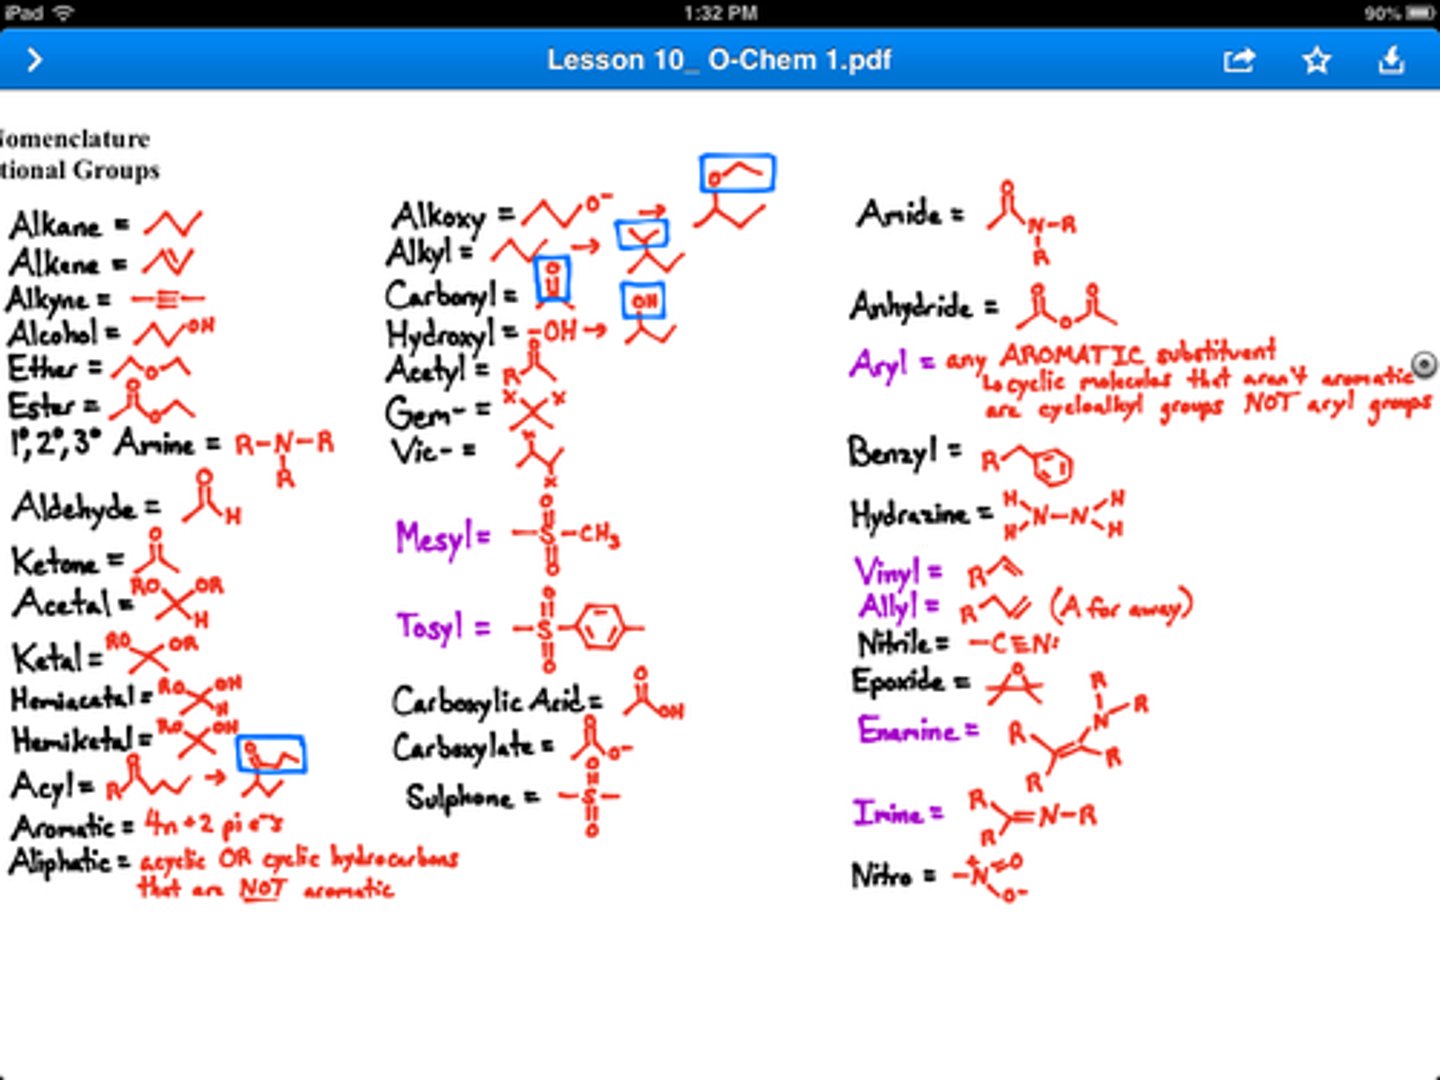 iPad
1:32 PM
90%
Lesson 10_ O-Chem 1.pdf
Nomenclature
tional Groups
Alkane =
Alkene =
Alkyne =
Alcohol = OH
Ether = O
Ester = O O
1°, 2°, 3° Amine = R-N-R
R
Aldehyde = O H
Ketone = O
Acetal = RO OR H
Ketal = RO OR
Hemiacatal = RO OH H
Hemiketal = RO OH
Acyl = R O → O
Aromatic = 4n+2 pi e-s
Aliphatic = acyclic OR cyclic hydrocarbons
that are NOT aromatic
Alkoxy = O- → O
Alkyl = →
Carbonyl = O
Hydroxyl = -OH → OH
Acetyl = R O
Gem- = X X
Vic- = X X
Mesyl = O S O -CH3
Tosyl = O S O
Carboxylic Acid = O OH
Carboxylate = O O-
Sulphone = O S O
Amide = O N-R
R
Anhydride = O O O
Aryl = any AROMATIC substituent
↳ cyclic molecules that aren't aromatic
are cycloalkyl groups NOT aryl groups
Benzyl = R
Hydrazine = H H N-N H H
Vinyl = R
Allyl = R (A far away)
Nitrile = -C≡N:
Epoxide = O
Enamine = R R N R R R
Imine = R R =N-R
Nitro = -N+ =O O-